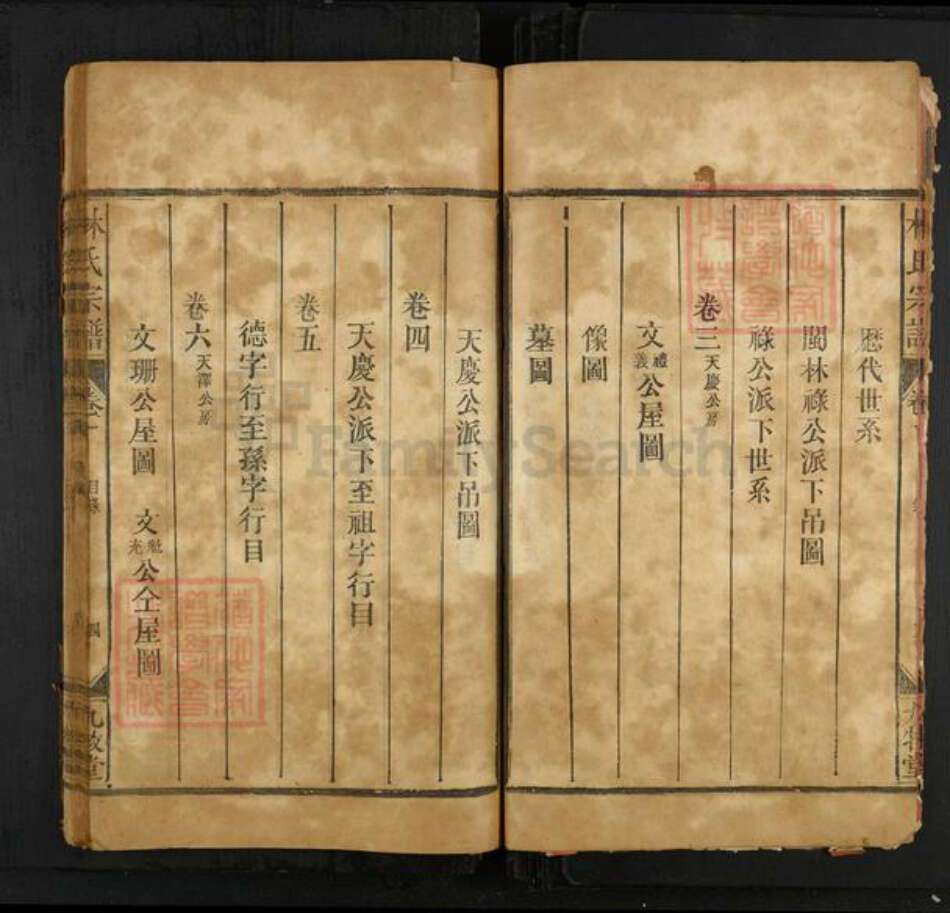 歷代世系
閩林祿公派下吊圖
祿公派下世系
卷三 天慶公房
文禮義公屋圖
像圖
墓圖
天慶公派下吊圖
卷四
天慶公派下至祖字行目
卷五
德字行至孫字行目
卷六 天澤公房
文珊公屋圖 文 光公仝屋圖
林氏宗譜 卷一 目錄 四 九牧堂
FamilySearch